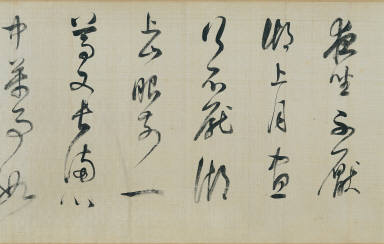 夜坐不厭
湖上月晝
行不厭湖
上山眼前一
尊又長滿心
中萬事如